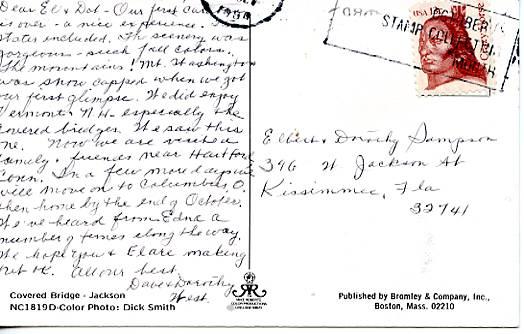 Dear El & Dot - Our first
is over - a nice experience.
States included. The scenery was
gorgeous - such fall colors.
The mountains! Mt. Washington
was snow capped when we got
our first glimpse. We did enjoy
Vermont & N H - especially the
covered bridges. We saw this
one. Now we are visiting
family & friends near Hartford
Conn. In a few more days we
will move on to Columbus, O.
then home by the end of October.
We've heard from Edna a
number of times along the way.
We hope you & Elare making
out OK. All our best,
Dave & Dorothy
West
Covered Bridge - Jackson
NC1819D-Color Photo: Dick Smith
MIKE ROBERTS
COLOR PRODUCTIONS
OCTOBER IS
STAMP COLLECTING
MONTH
USA
Elbert & Dorothy Sampson
396 W Jackson St
Kissimmee, Fla
32741
Published by Bromley & Company, Inc.,
Boston, Mass. 02210